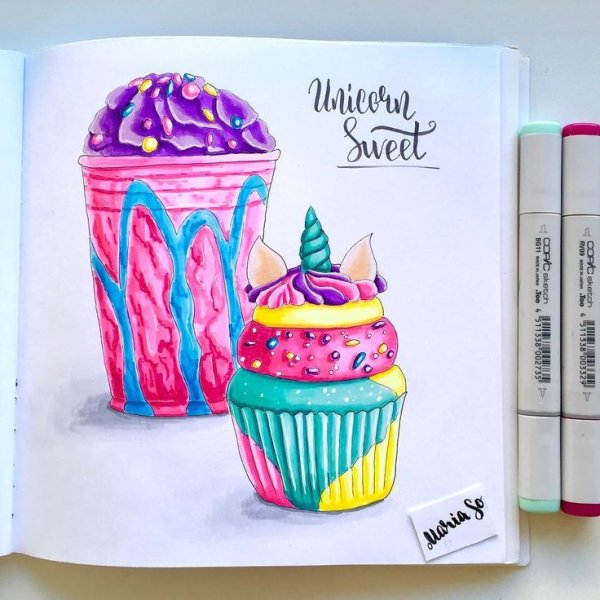 Unicorn
Sweet
Maria So
COPIC sketch
BG11 MADE IN JAPAN .Too
4 511338 002735
COPIC sketch
RV09 MADE IN JAPAN .Too
4 511338 003329